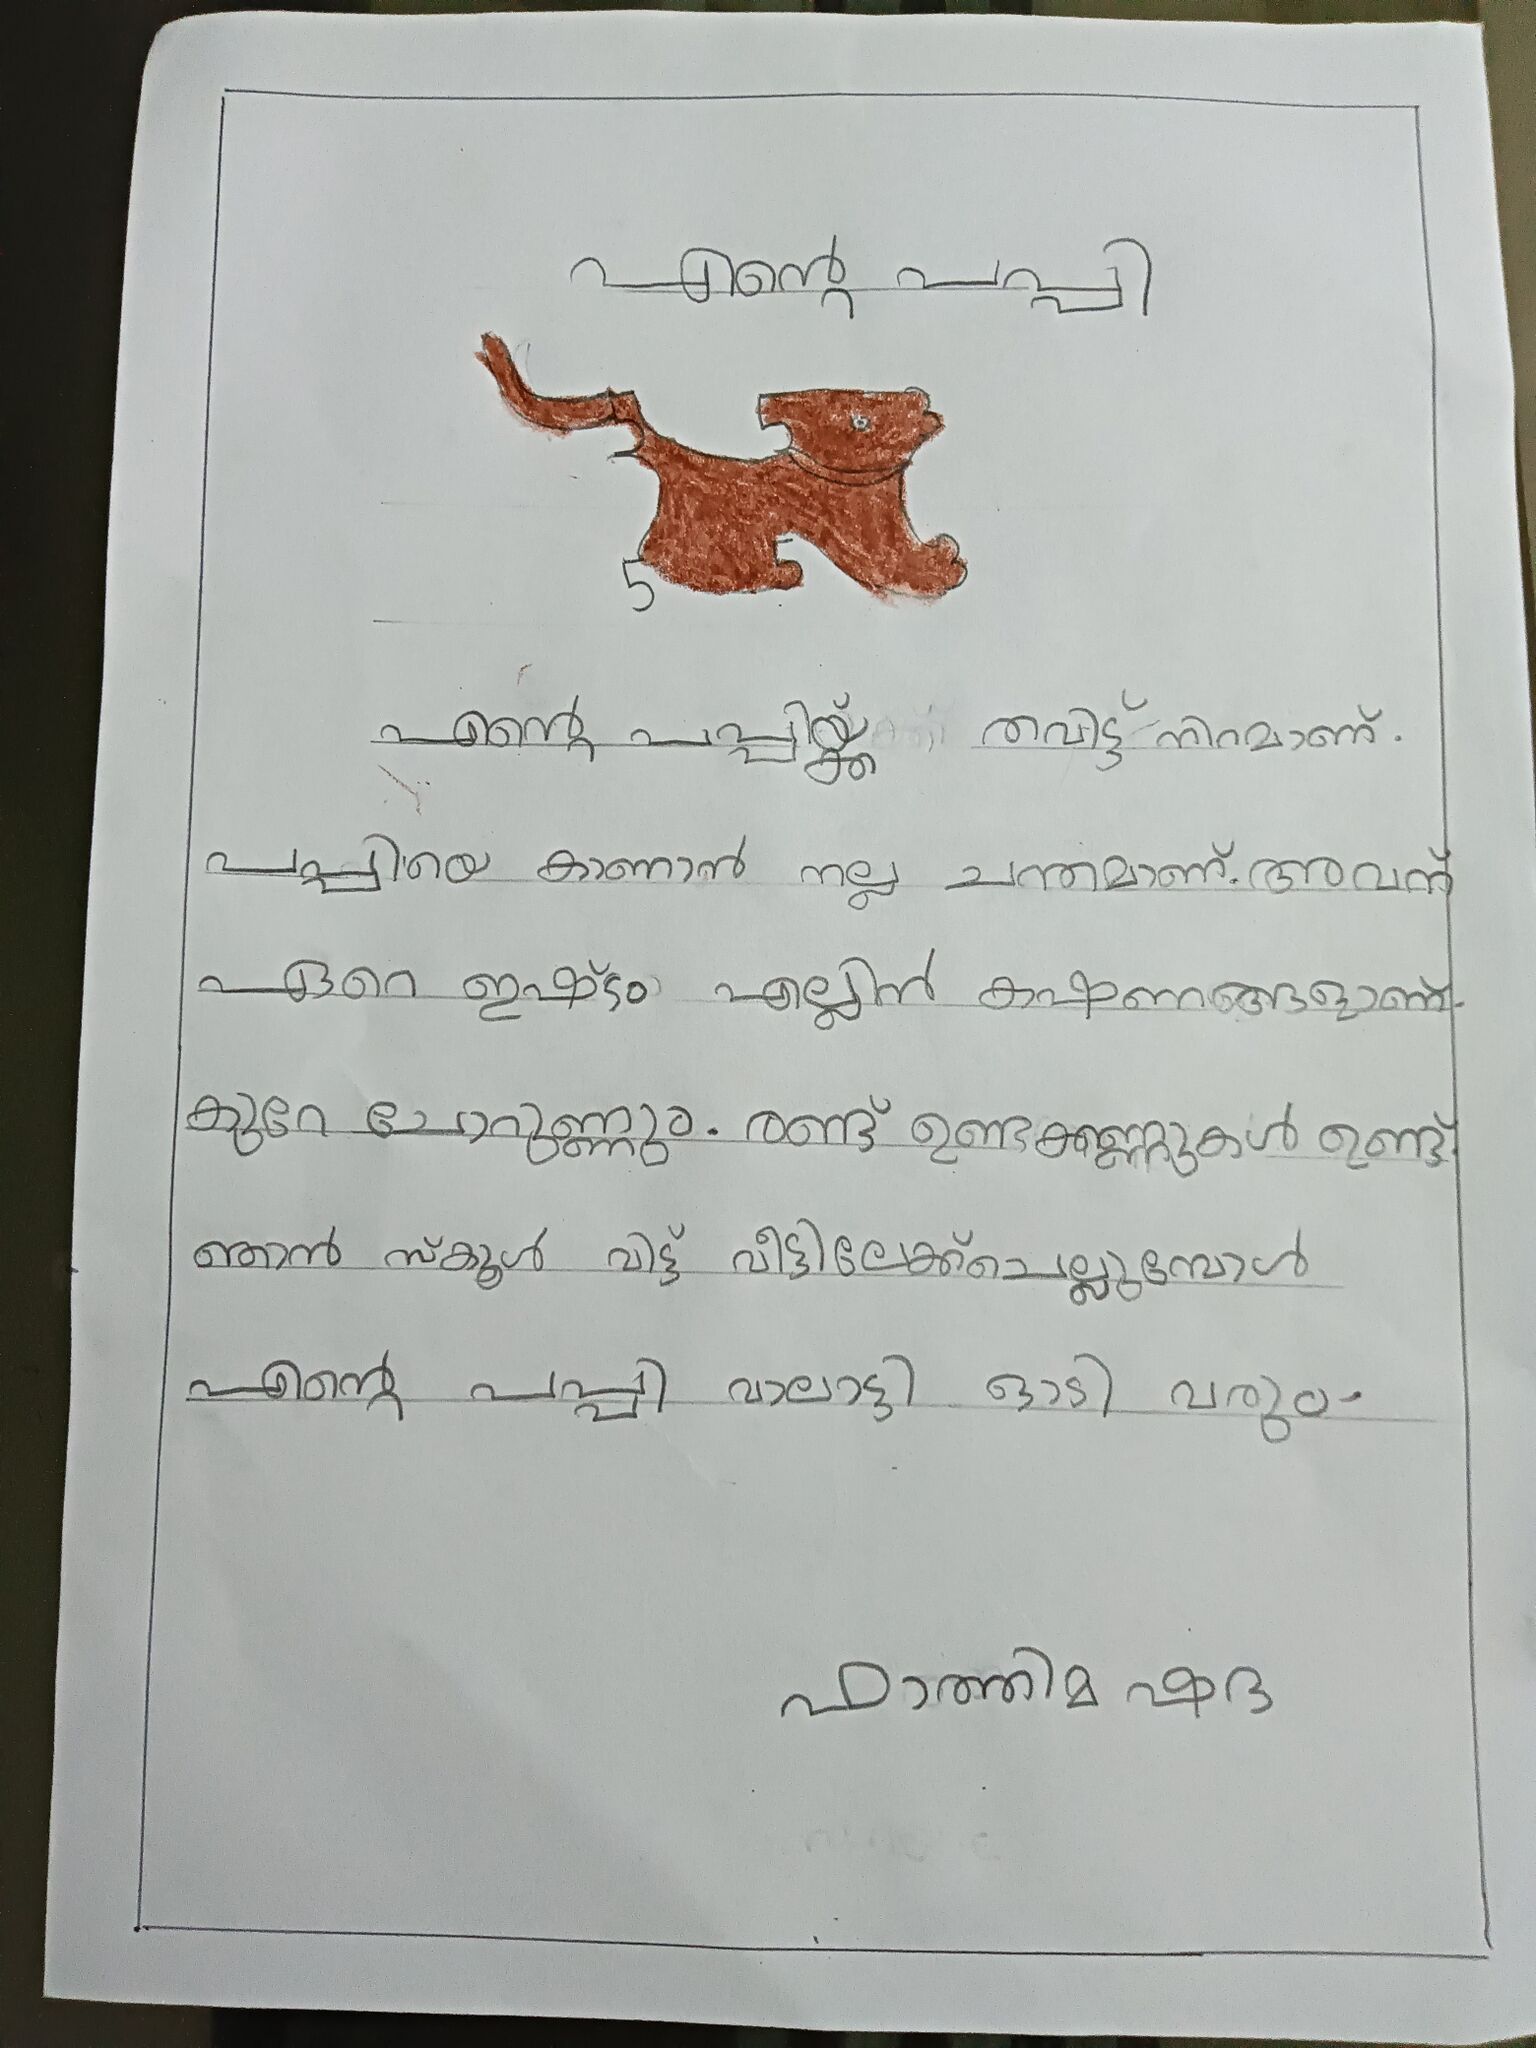 എന്റെ പപ്പി
എന്റെ പപ്പിയ്ക്ക് തവിട്ട് നിറമാണ്.
പപ്പിയെ കാണാൻ നല്ല ചന്തമാണ്. അവന്
ഏറെ ഇഷ്ടം എല്ലിൻ കഷണങ്ങളാണ്.
കുറേ ചോറുണ്ണും. രണ്ട് ഉണ്ടക്കണ്ണുകൾ ഉണ്ട്.
ഞാൻ സ്കൂൾ വിട്ട് വീട്ടിലേക്ക് ചെല്ലുമ്പോൾ
എന്റെ പപ്പി വാലാട്ടി ഓടി വരും.
ഫാത്തിമ ഷദ